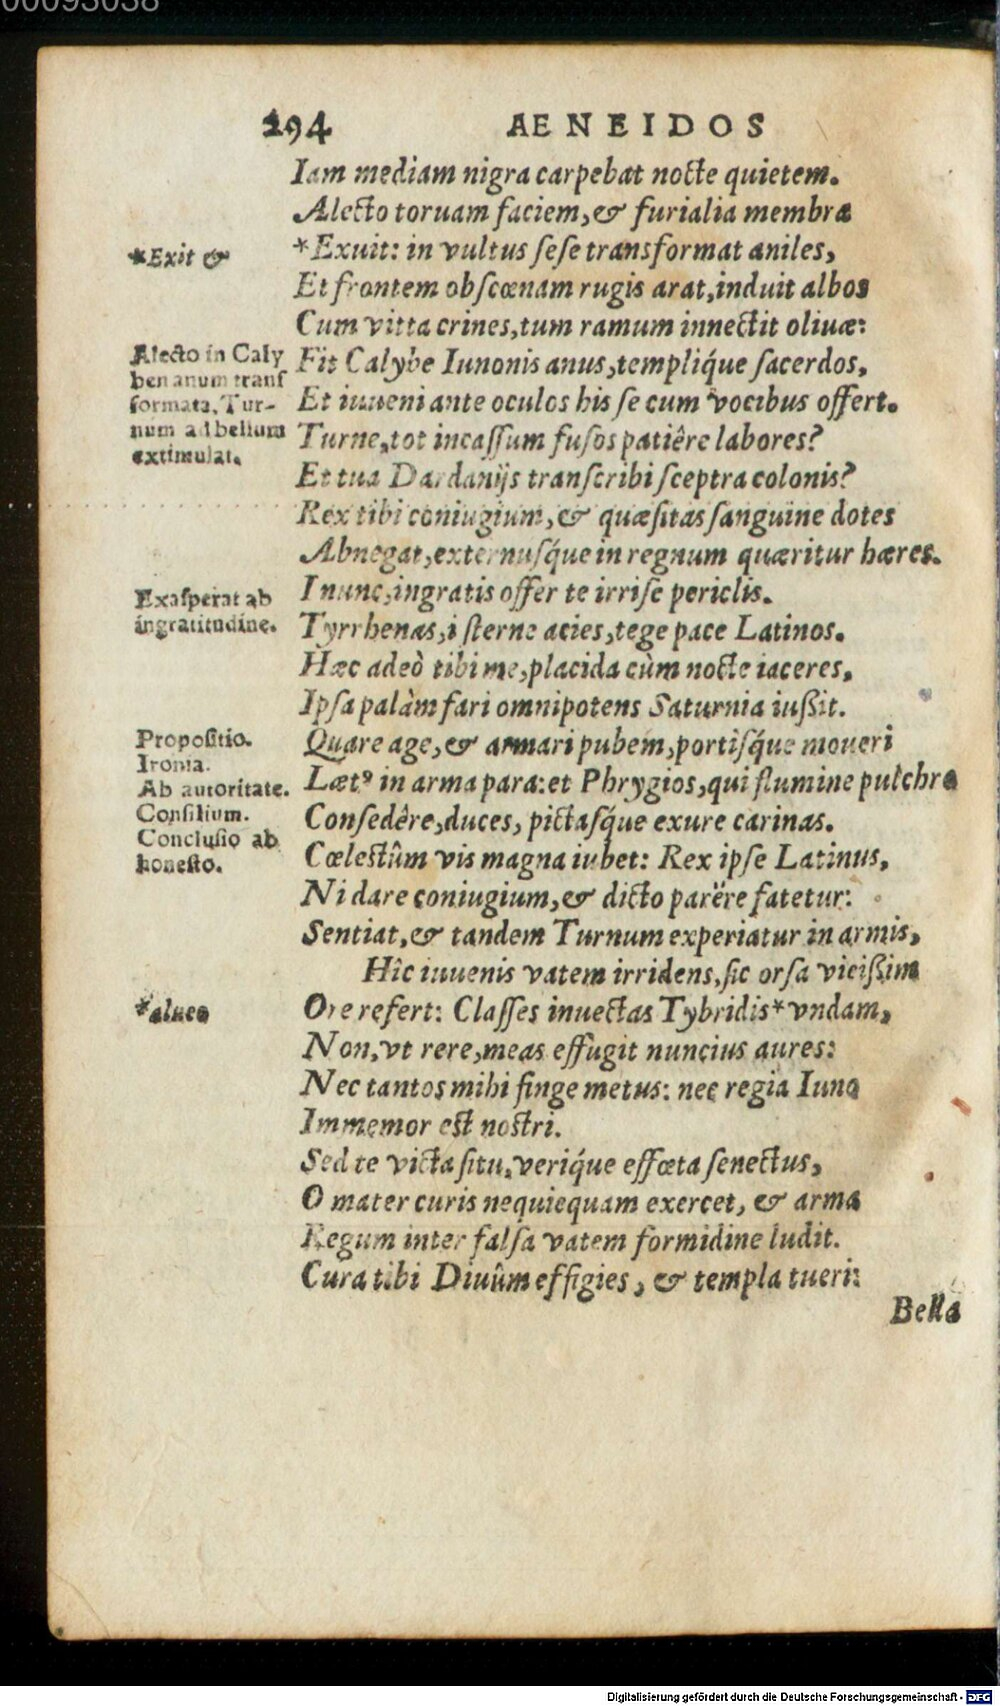 00093038
294 AENEIDOS
Iam mediam nigra carpebat nocte quietem.
Alecto toruam faciem, & furialia membra
*Exit &
*Exuit: in vultus ſeſe transformat aniles,
Et frontem obſcœnam rugis arat, induit albos
Cum vitta crines, tum ramum innectit oliuæ:
Alecto in Caly
ben anum tranſ
formata, Tur-
num ad bellum
extimulat.
Fit Calybe Iunonis anus, templiq́ue ſacerdos,
Et iuueni ante oculos his ſe cum vocibus offert.
Turne, tot incaſſum fuſos patiêre labores?
Et tua Dardanijs tranſcribi ſceptra colonis?
Rex tibi coniugium, & quæſitas ſanguine dotes
Abnegat, externuſq́ue in regnum quæritur hæres.
Exaſperat ab
ingratitudine.
I nunc, ingratis offer te irriſe periclis.
Tyrrhenas, i ſterne acies, tege pace Latinos.
Hæc adeò tibi me, placida cùm nocte iaceres,
Ipſa palàm fari omnipotens Saturnia iuſsit.
Propoſitio.
Ironia.
Ab autoritate.
Conſilium.
Concluſio ab
honeſto.
Quare age, & armari pubem, portiſq́ue moueri
Lætꝰ in arma para: et Phrygios, qui flumine pulchro
Conſedêre, duces, pictaſq́ue exure carinas.
Cœleſtûm vis magna iubet: Rex ipſe Latinus,
Ni dare coniugium, & dicto parëre fatetur:
Sentiat, & tandem Turnum experiatur in armis,
Hîc iuuenis vatem irridens, ſic orſa viciſsim
*alueo
Ore refert: Claſſes inuectas Tybridis * vndam,
Non, vt rere, meas effugit nuncius aures:
Nec tantos mihi finge metus: nec regia Iuno
Immemor eſt noſtri.
Sed te victa ſitu, veriq́ue effœta ſenectus,
O mater curis nequiequam exercet, & arma
Regum inter falſa vatem formidine ludit.
Cura tibi Diuûm effigies, & templa tueri:
Bella
Digitalisierung gefördert durch die Deutsche Forschungsgemeinschaft - DFG